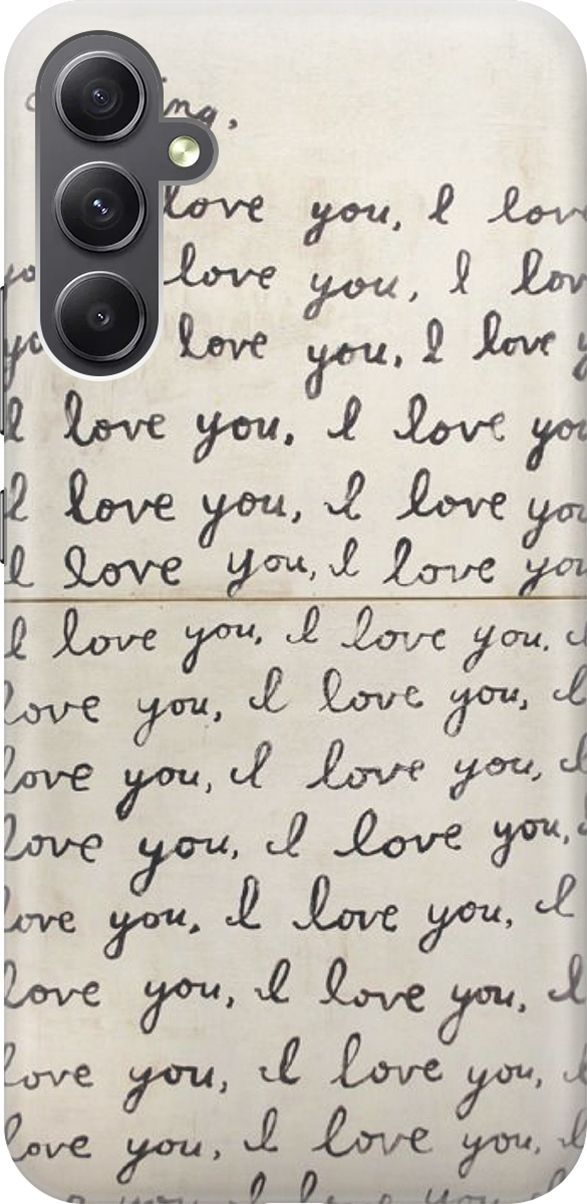 love you, I love
love you, I love
love you, I love
I love you, I love you
I love you, I love you
I love you, I love you
I love you, I love you,
love you, I love you, I
love you, I love you, I
love you, I love you,
love you, I love you, I
love you, I love you, I
love you, I love you,
love you, I love you, I